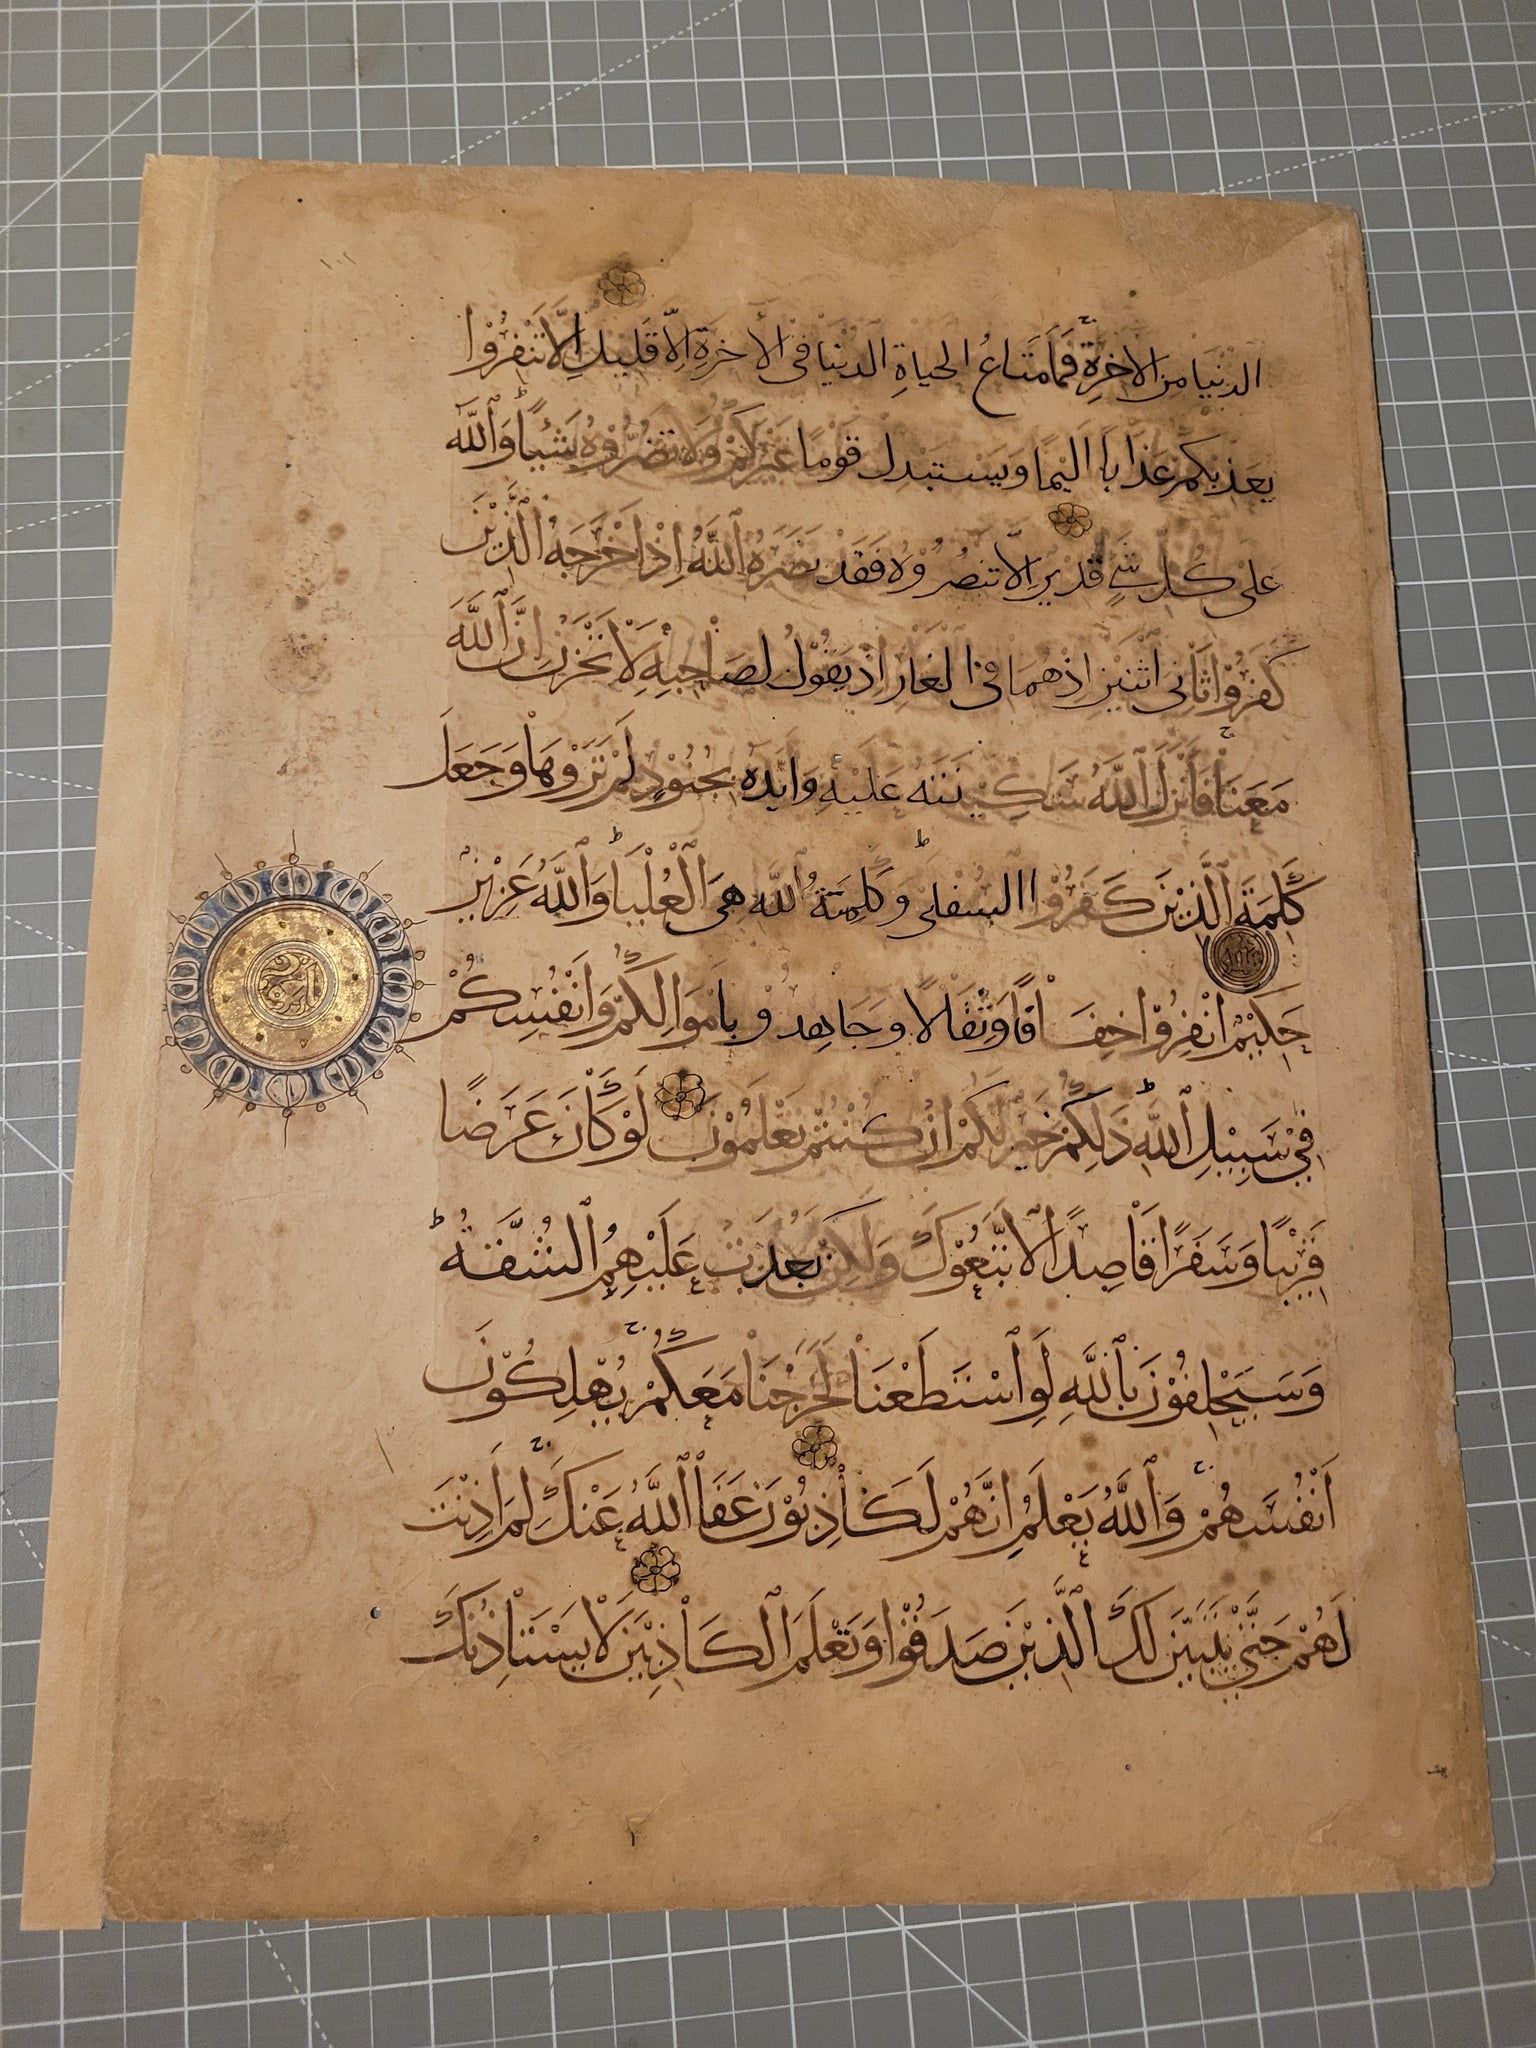 الدنيا من الاخرة فما متاع الحياة الدنيا في الاخرة الا قليل الا تنفروا
يعذبكم عذابا اليما ويستبدل قوما غيركم ولا تضروه شيئا والله
على كل شئ قدير الا تنصروه فقد نصره الله اذ اخرجه الذين
كفروا ثاني اثنين اذ هما في الغار اذ يقول لصاحبه لا تحزن ان الله
معنا فانزل الله سكينته عليه وايده بجنود لم تروها وجعل
كلمة الذين كفروا السفلى وكلمة الله هي العليا والله عزيز
حكيم انفروا خفافا وثقالا وجاهدوا باموالكم وانفسكم
في سبيل الله ذلكم خير لكم ان كنتم تعلمون لو كان عرضا
قريبا وسفرا قاصدا لاتبعوك ولكن بعدت عليهم الشقة
وسيحلفون بالله لو استطعنا لخرجنا معكم يهلكون
انفسهم والله يعلم انهم لكاذبون عفا الله عنك لم اذنت
لهم حتى يتبين لك الذين صدقوا وتعلم الكاذبين لا يستاذنك